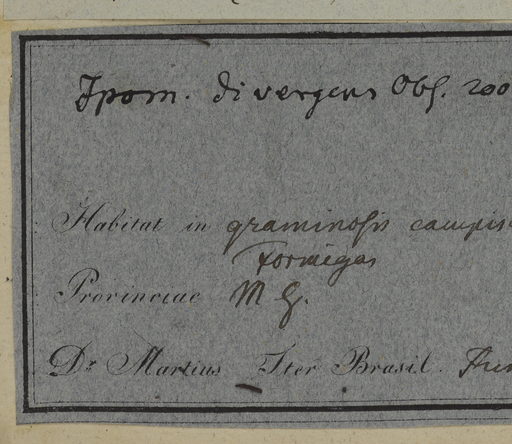 Ipom. divergens Obs. 200
Habitat in graminosis campis
Formigas
Provinciae M G.
Dr Martius Iter Brasil.